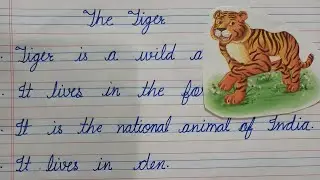 The Tiger
Tiger is a wild a
It lives in the fo
It is the national animal of India.
It lives in den.